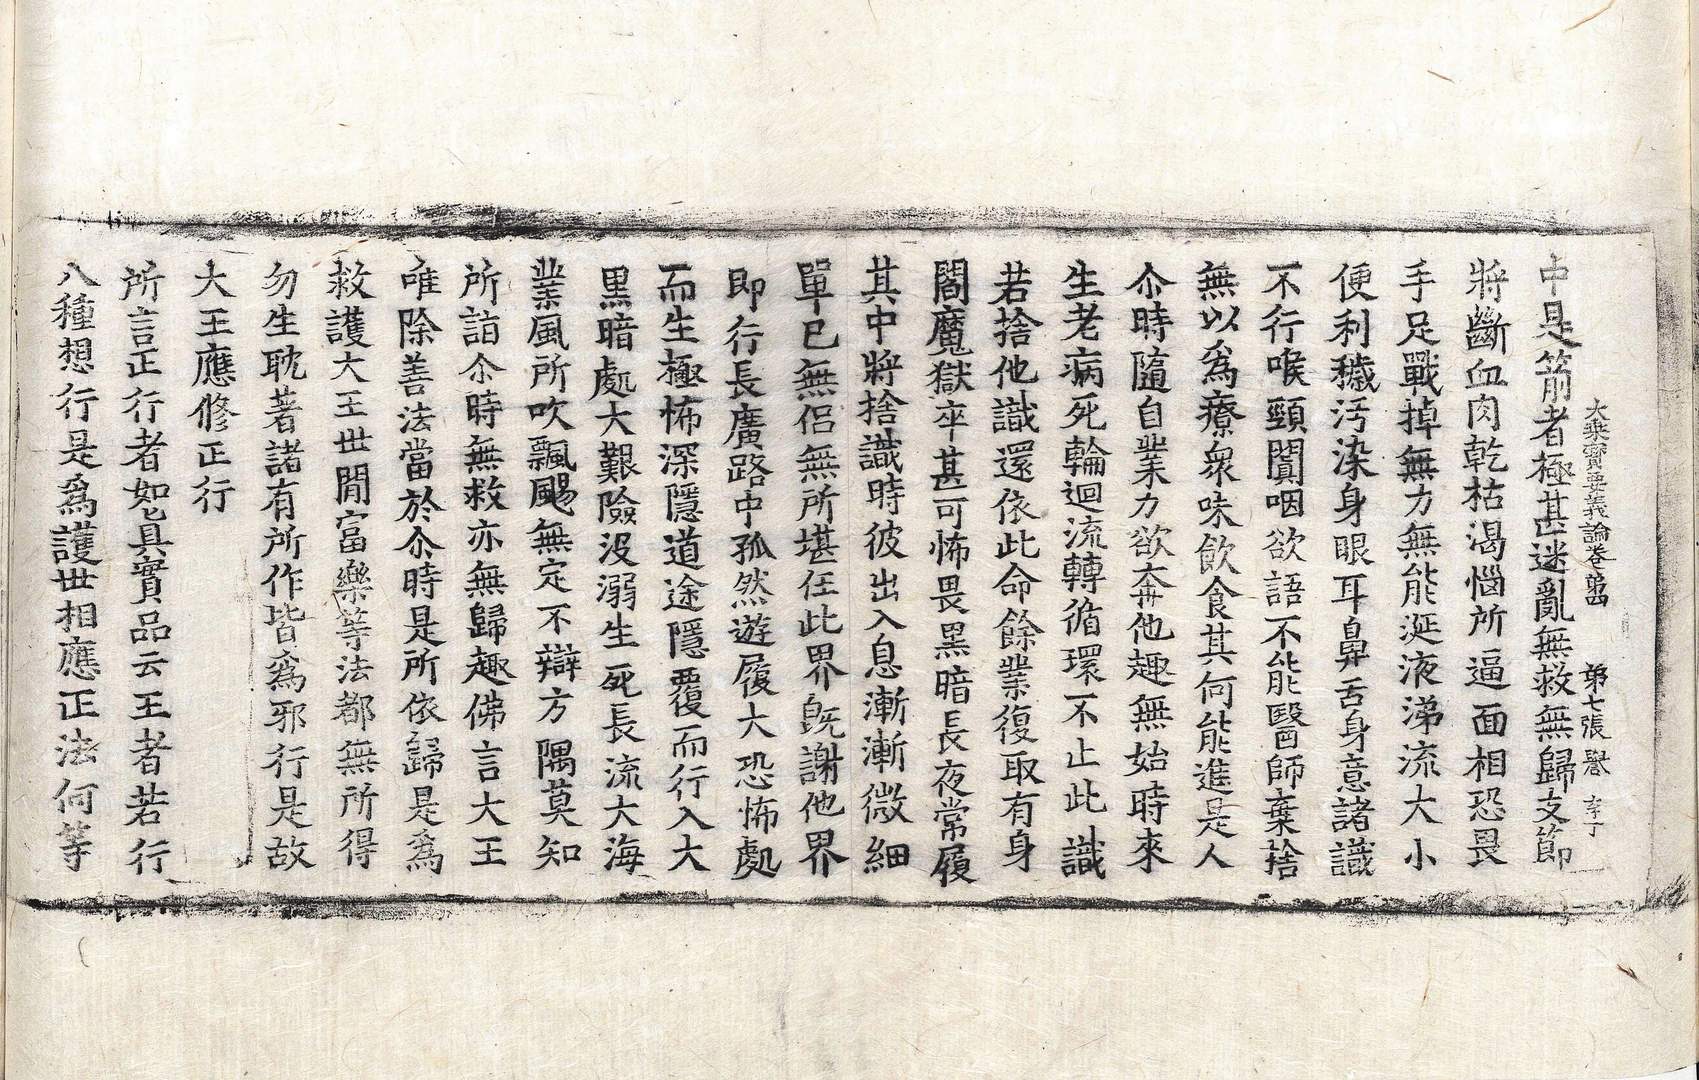 大乘寶要義論卷第四 第七張 譽
中是箭者極甚迷亂無救無歸支節
將斷血肉乾枯渴惱所逼面相恐畏
手足戰掉無力無能涎液涕流大小
便利穢污染身眼耳鼻舌身意諸識
不行喉頸闠咽欲語不能醫師棄捨
無以爲療衆味飮食其何能進是人
尒時隨自業力欲奔他趣無始時來
生老病死輪迴流轉循環不止此識
若捨他識還依此命餘業復取有身
閻魔獄卒甚可怖畏黑暗長夜常履
其中將捨識時彼出入息漸漸微細
單已無侶無所堪任此界旣謝他界
即行長廣路中孤然遊履大恐怖處
而生極怖深隱道途隱覆而行入大
黑暗處大艱險没溺生死長流大海
業風所吹飄颺無定不辯方隅莫知
所詣尒時無救亦無歸趣佛言大王
唯除善法當於尒時是所依歸是爲
救護大王世閒富樂等法都無所得
勿生耽著諸有所作皆爲邪行是故
大王應修正行
所言正行者如彼眞實品云王者若行
八種想行是爲護世相應正法何等